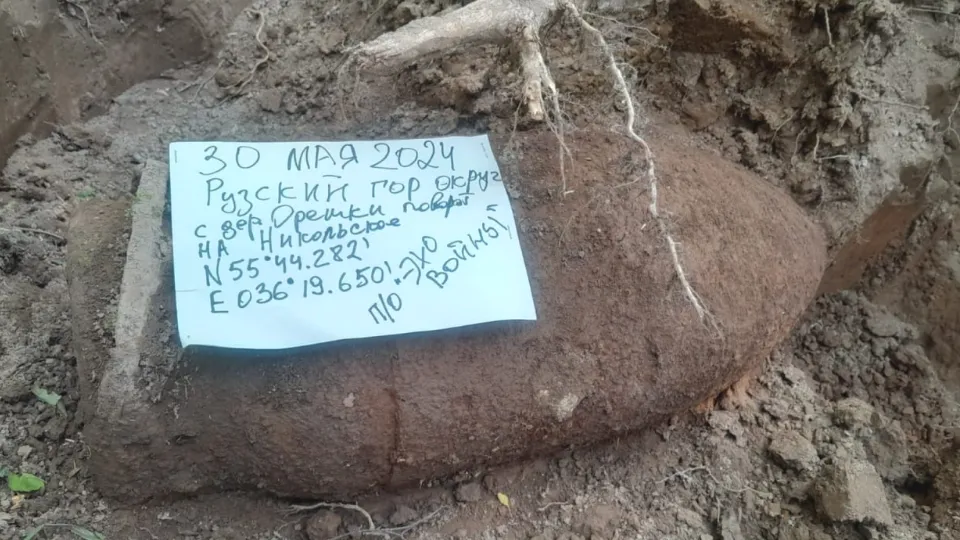 30 МАЯ 2024
Рузский гор округ
с дер. Орешки поворот
НА Никольское
N 55°44.282'
E 036°19.650'
п/о "ЭХО
ВОЙНЫ"